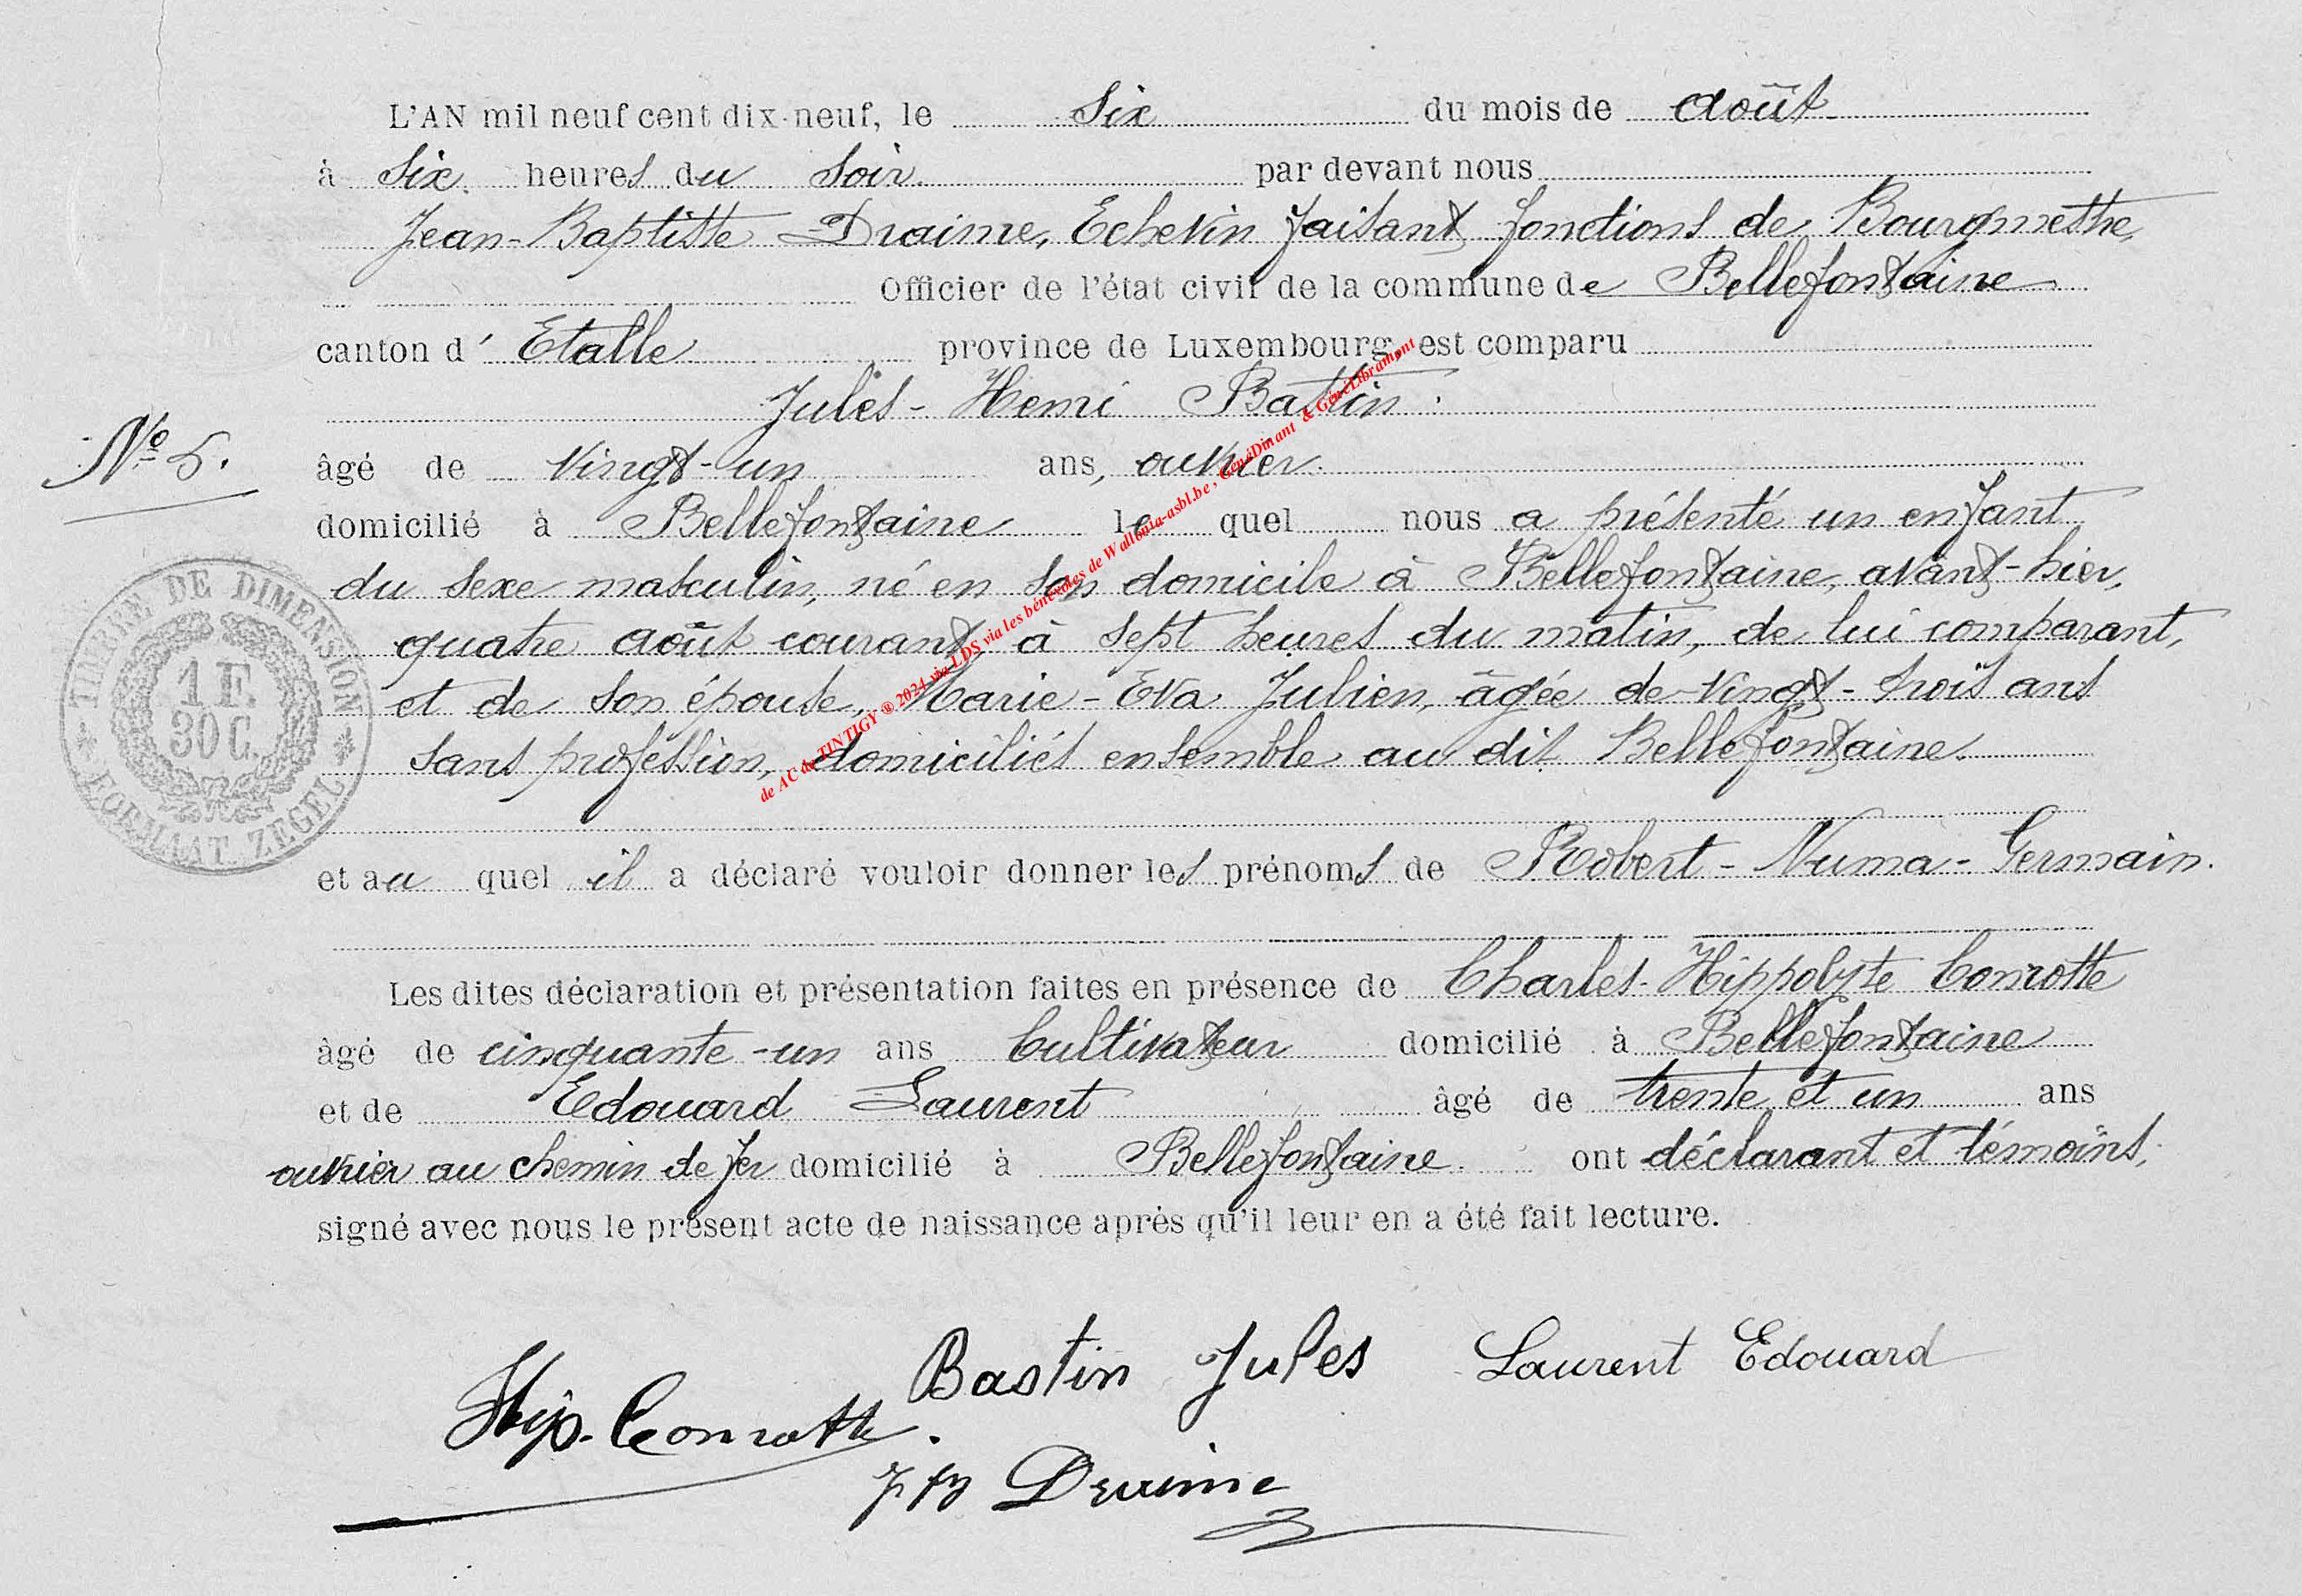 L'AN mil neuf cent dix-neuf, le Six du mois de Août
à Six heures du Soir par devant nous
Jean-Baptiste Draime, Echevin faisant fonctions de Bourgmestre,
Officier de l'état civil de la commune de Bellefontaine
canton d' Etalle province de Luxembourg, est comparu
Jules-Henri Bastin
N° 5.
âgé de Vingt-un ans, ouvrier
domicilié à Bellefontaine le quel nous a présenté un enfant
du Sexe masculin, né en son domicile à Bellefontaine, avant-hier,
quatre août courant à Sept heures du matin, de lui comparant,
et de son épouse, Marie-Eva Julien, âgée de Vingt-trois ans
sans profession, domiciliés ensemble au dit Bellefontaine.
TIMBRE DE DIMENSION
1 F.
30 C.
FORMAAT ZEGEL
et au quel il a déclaré vouloir donner les prénoms de Robert-Numa-Germain.
Les dites déclaration et présentation faites en présence de Charles-Hippolyte Conrotte
âgé de cinquante-un ans Cultivateur domicilié à Bellefontaine
et de Edouard Laurent âgé de trente et un ans
ouvrier au chemin de fer domicilié à Bellefontaine. ont déclarant et témoins,
signé avec nous le présent acte de naissance après qu'il leur en a été fait lecture.
Bastin Jules Laurent Edouard
Hip. Conrotte.
JB Draime
de AC de TINTIGY ® 2024 via LDS via les bénévoles de Wallonia-asbl.be, GénéDinant & GénéLibramont